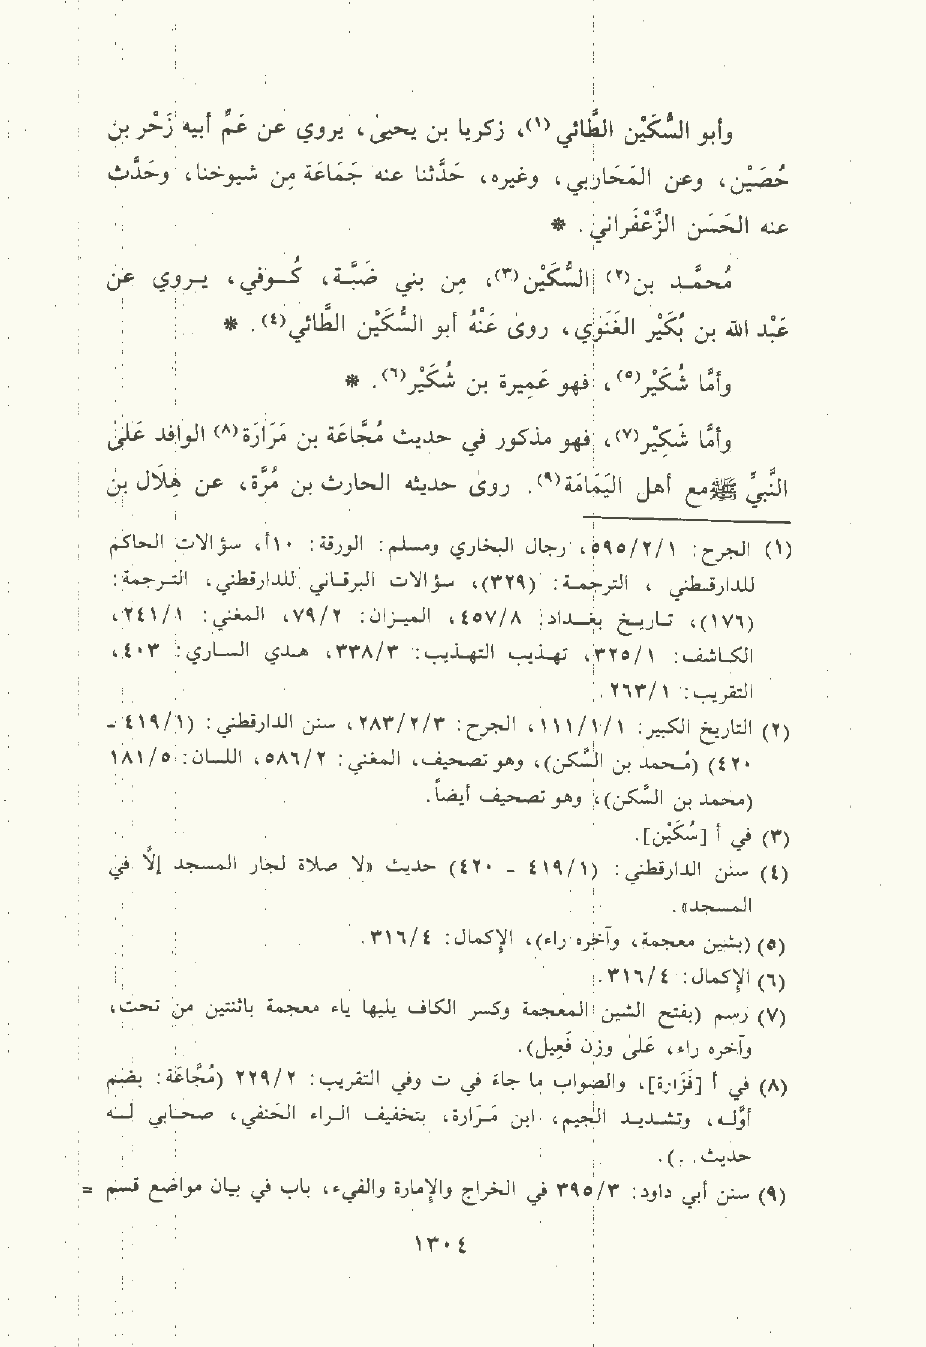 وأبو السُّكَيْن الطَّائي⁽¹⁾، زكريا بن يحيىٰ، يروي عن عَمِّ أبيه زَحْر بن
حُصَيْن، وعن المَحَاربي، وغيره، حَدَّثنا عنه جَمَاعَة مِن شيوخنا، وحَدَّث
عنه الحَسَن الزَّعْفَراني. *
مُحمَّـد بن⁽٢⁾ السُّكَيْن⁽٣⁾، مِن بني ضَبَّـة، كُـوفي، يـروي عن
عَبْد الله بن بُكَيْر الغَنَوي، روىٰ عَنْهُ أبو السُّكَيْن الطَّائي⁽٤⁾. *
وأمَّا شُكَيْر⁽٥⁾، فهو عَمِيرة بن شُكَيْر⁽٦⁾. *
وأمَّا شَكِيْر⁽٧⁾، فهو مذكور في حديث مُجَّاعَة بن مَرَارَة⁽٨⁾ الوافد عَلىٰ
النَّبيِّ ﷺ مع أهل اليَمَامَة⁽٩⁾. روىٰ حديثه الحارث بن مُرَّة، عن هِلَال بن
(١) الجرح: ٥٩٥/٢/١، رجال البخاري ومسلم: الورقة: ١٠أ، سؤالات الحاكم
للدارقـطني ، الترجمـة: (٣٢٩)، سؤالات البرقـاني للدارقطني، التـرجمة:
(١٧٦)، تـاريـخ بغـداد: ٤٥٧/٨، الميـزان: ٧٩/٢، المغني: ٢٤١/١،
الكـاشف: ٣٢٥/١، تهـذيب التهـذيب: ٣٣٨/٣، هـدي السـاري: ٤٠٣،
التقريب: ٢٦٣/١.
(٢) التاريخ الكبير: ١١١/١/١، الجرح: ٢٨٣/٢/٣، سنن الدارقطني: (٤١٩/١ -
٤٢٠) (مُحمد بن السَّكن)، وهو تصحيف، المغني: ٥٨٦/٢، اللسان: ١٨١/٥
(محمد بن السَّكن)، وهو تصحيف أيضاً.
(٣) في أ [سُكَيْن].
(٤) سنن الدارقطني: (٤١٩/١ - ٤٢٠) حديث «لا صلاة لجار المسجد إلَّا في
المسجد».
(٥) (بشين معجمة، وآخره راء)، الإكمال: ٣١٦/٤.
(٦) الإكمال: ٣١٦/٤.
(٧) رسم (بفتح الشين المعجمة وكسر الكاف يليها ياء معجمة باثنتين من تحت،
وآخره راء، عَلىٰ وزن فَعِيل).
(٨) في أ [فَزَارة]، والصواب ما جاء في ت وفي التقريب: ٢٢٩/٢ (مُجَّاعَة: بضم
أوَّلـه، وتشديـد الجيم، ابن مَـرَارة، بتخفيف الـراء الحَنفي، صحـابي لـه
حديث...).
(٩) سنن أبي داود: ٣٩٥/٣ في الخراج والإمارة والفيء، باب في بيان مواضع قسم =
١٣٠٤